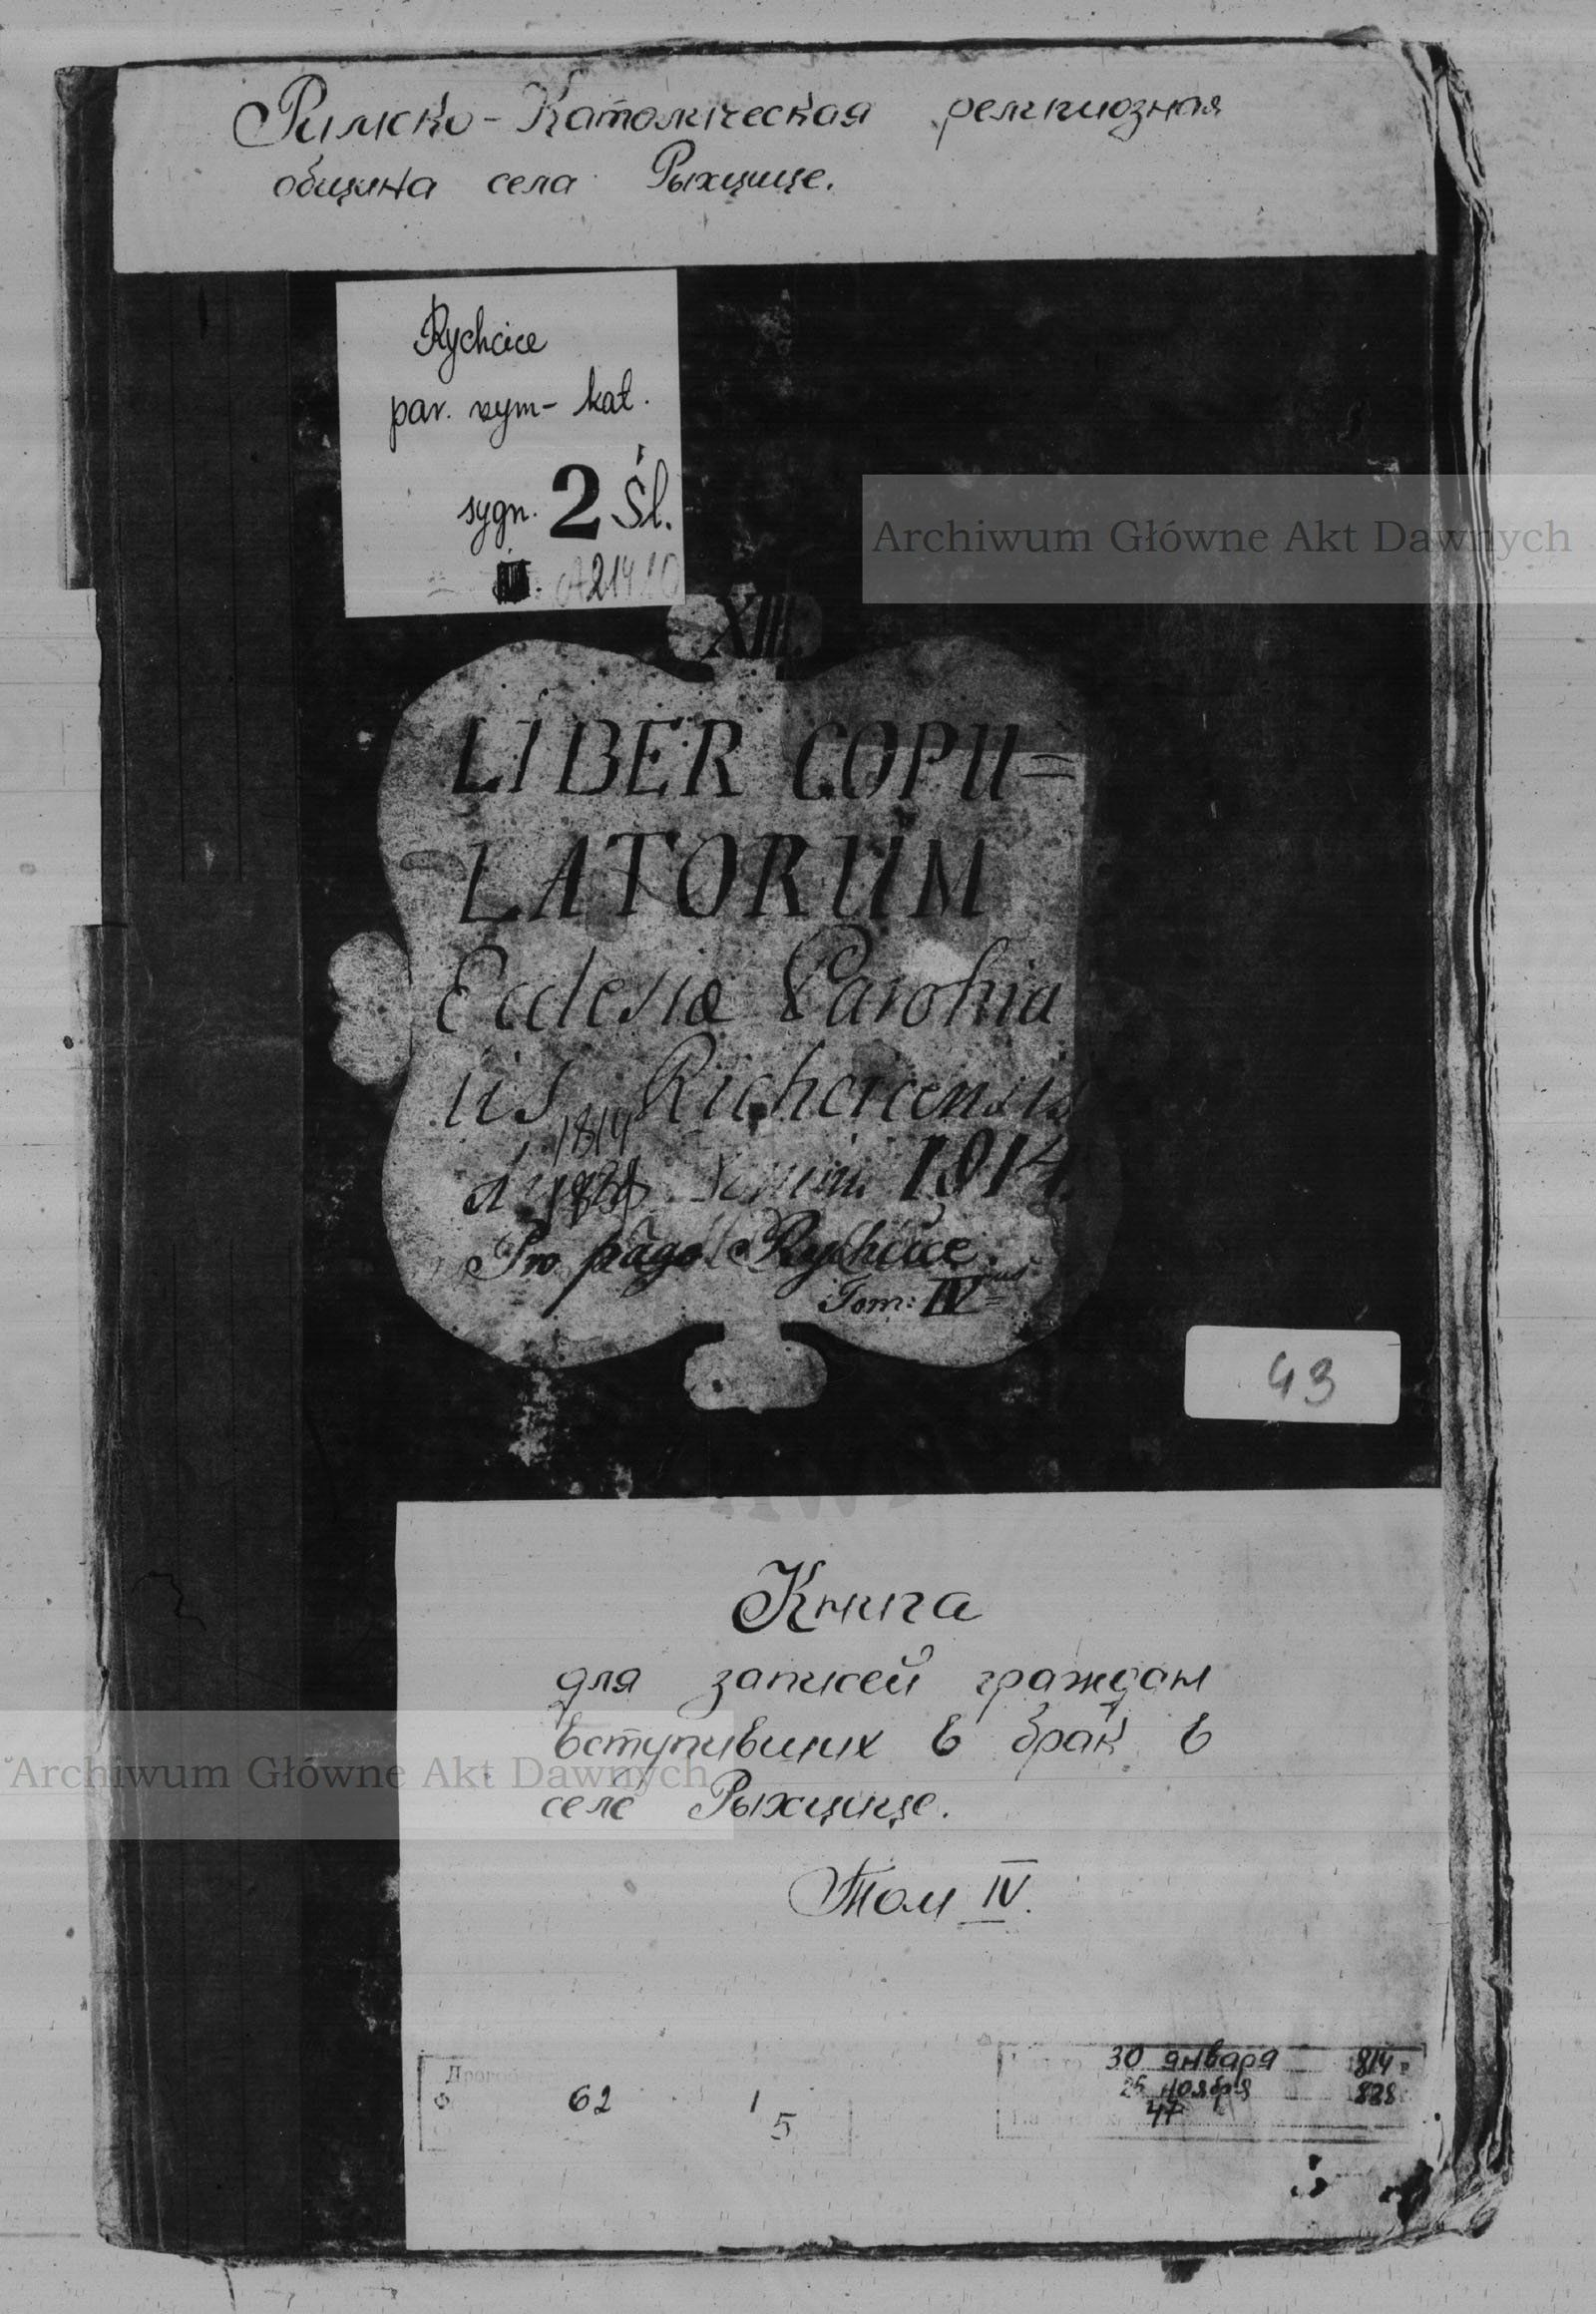 Римско-Католическая религиозная
община села Рыхцице.
Rychcice
par. rzym-kat.
sygn. 2 Śl.
Archiwum Główne Akt Dawnych
XIII.
LIBER COPU=
LATORUM
Ecclesiæ Parohia
lis Richcicensis
1814
1914
Pro pago Rychcice
Tom: IV
43
Книга
для записей граждан
вступивших в брак в
Archiwum Główne Akt Dawnych
селе Рыхцице.
Том IV.
30 января 814
25 ноября 838
47
Ф 62 1
5